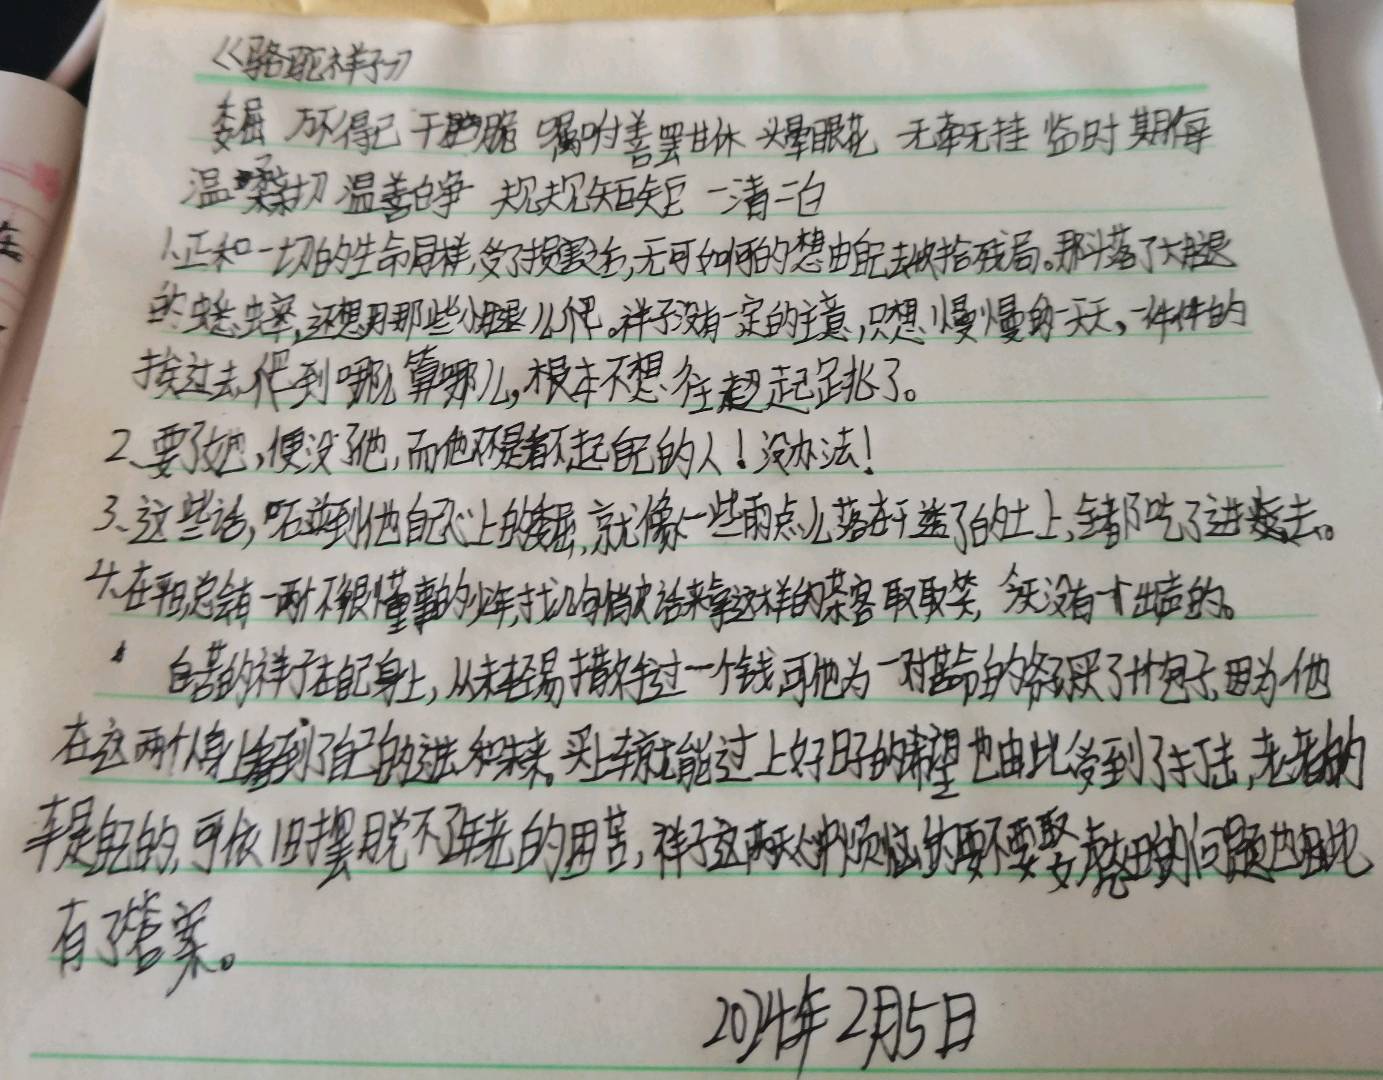 《骆驼祥子》
委屈 万不得已 干脆 嘱咐 善罢甘休 头晕眼花 无牵无挂 临时 期侮
温柔 亲切 温善白净 规规矩矩 一清二白
1.正和一切的生命同样,受了损害之后,无可如何的想由自己去收拾残局。那斗落了大腿
的蟋蟀,还想用那些小腿儿爬。祥子没有一定的主意,只想慢慢的一天天,一件件的
挨过去,爬到哪儿算哪儿,根本不想往起跳了。
2、要了她,便没了他,而他又不是看不起自己的人!没办法!
3、这些话,碰到他自己心上的委屈,就像一些雨点儿落在干透了的土上,全都吃了进去。
4、在平日,总会有一两个不很懂事的少年,找几句俏皮话来拿这样的茶客取取笑,今天没有一个出声的。
自苦的祥子在自己身上,从未轻易撒手过一个钱,可他为一对苦命的爷孙买了十个包子,因为他
在这两个人身上看到了自己的过去和未来。买上车就能过上好日子的希望也由此受到了打击,老者的
车是自己的,可依旧摆脱不了年老的困苦,祥子这两天心中烦恼的要不要娶虎妞的问题也由此
有了答案。
2024年2月5日